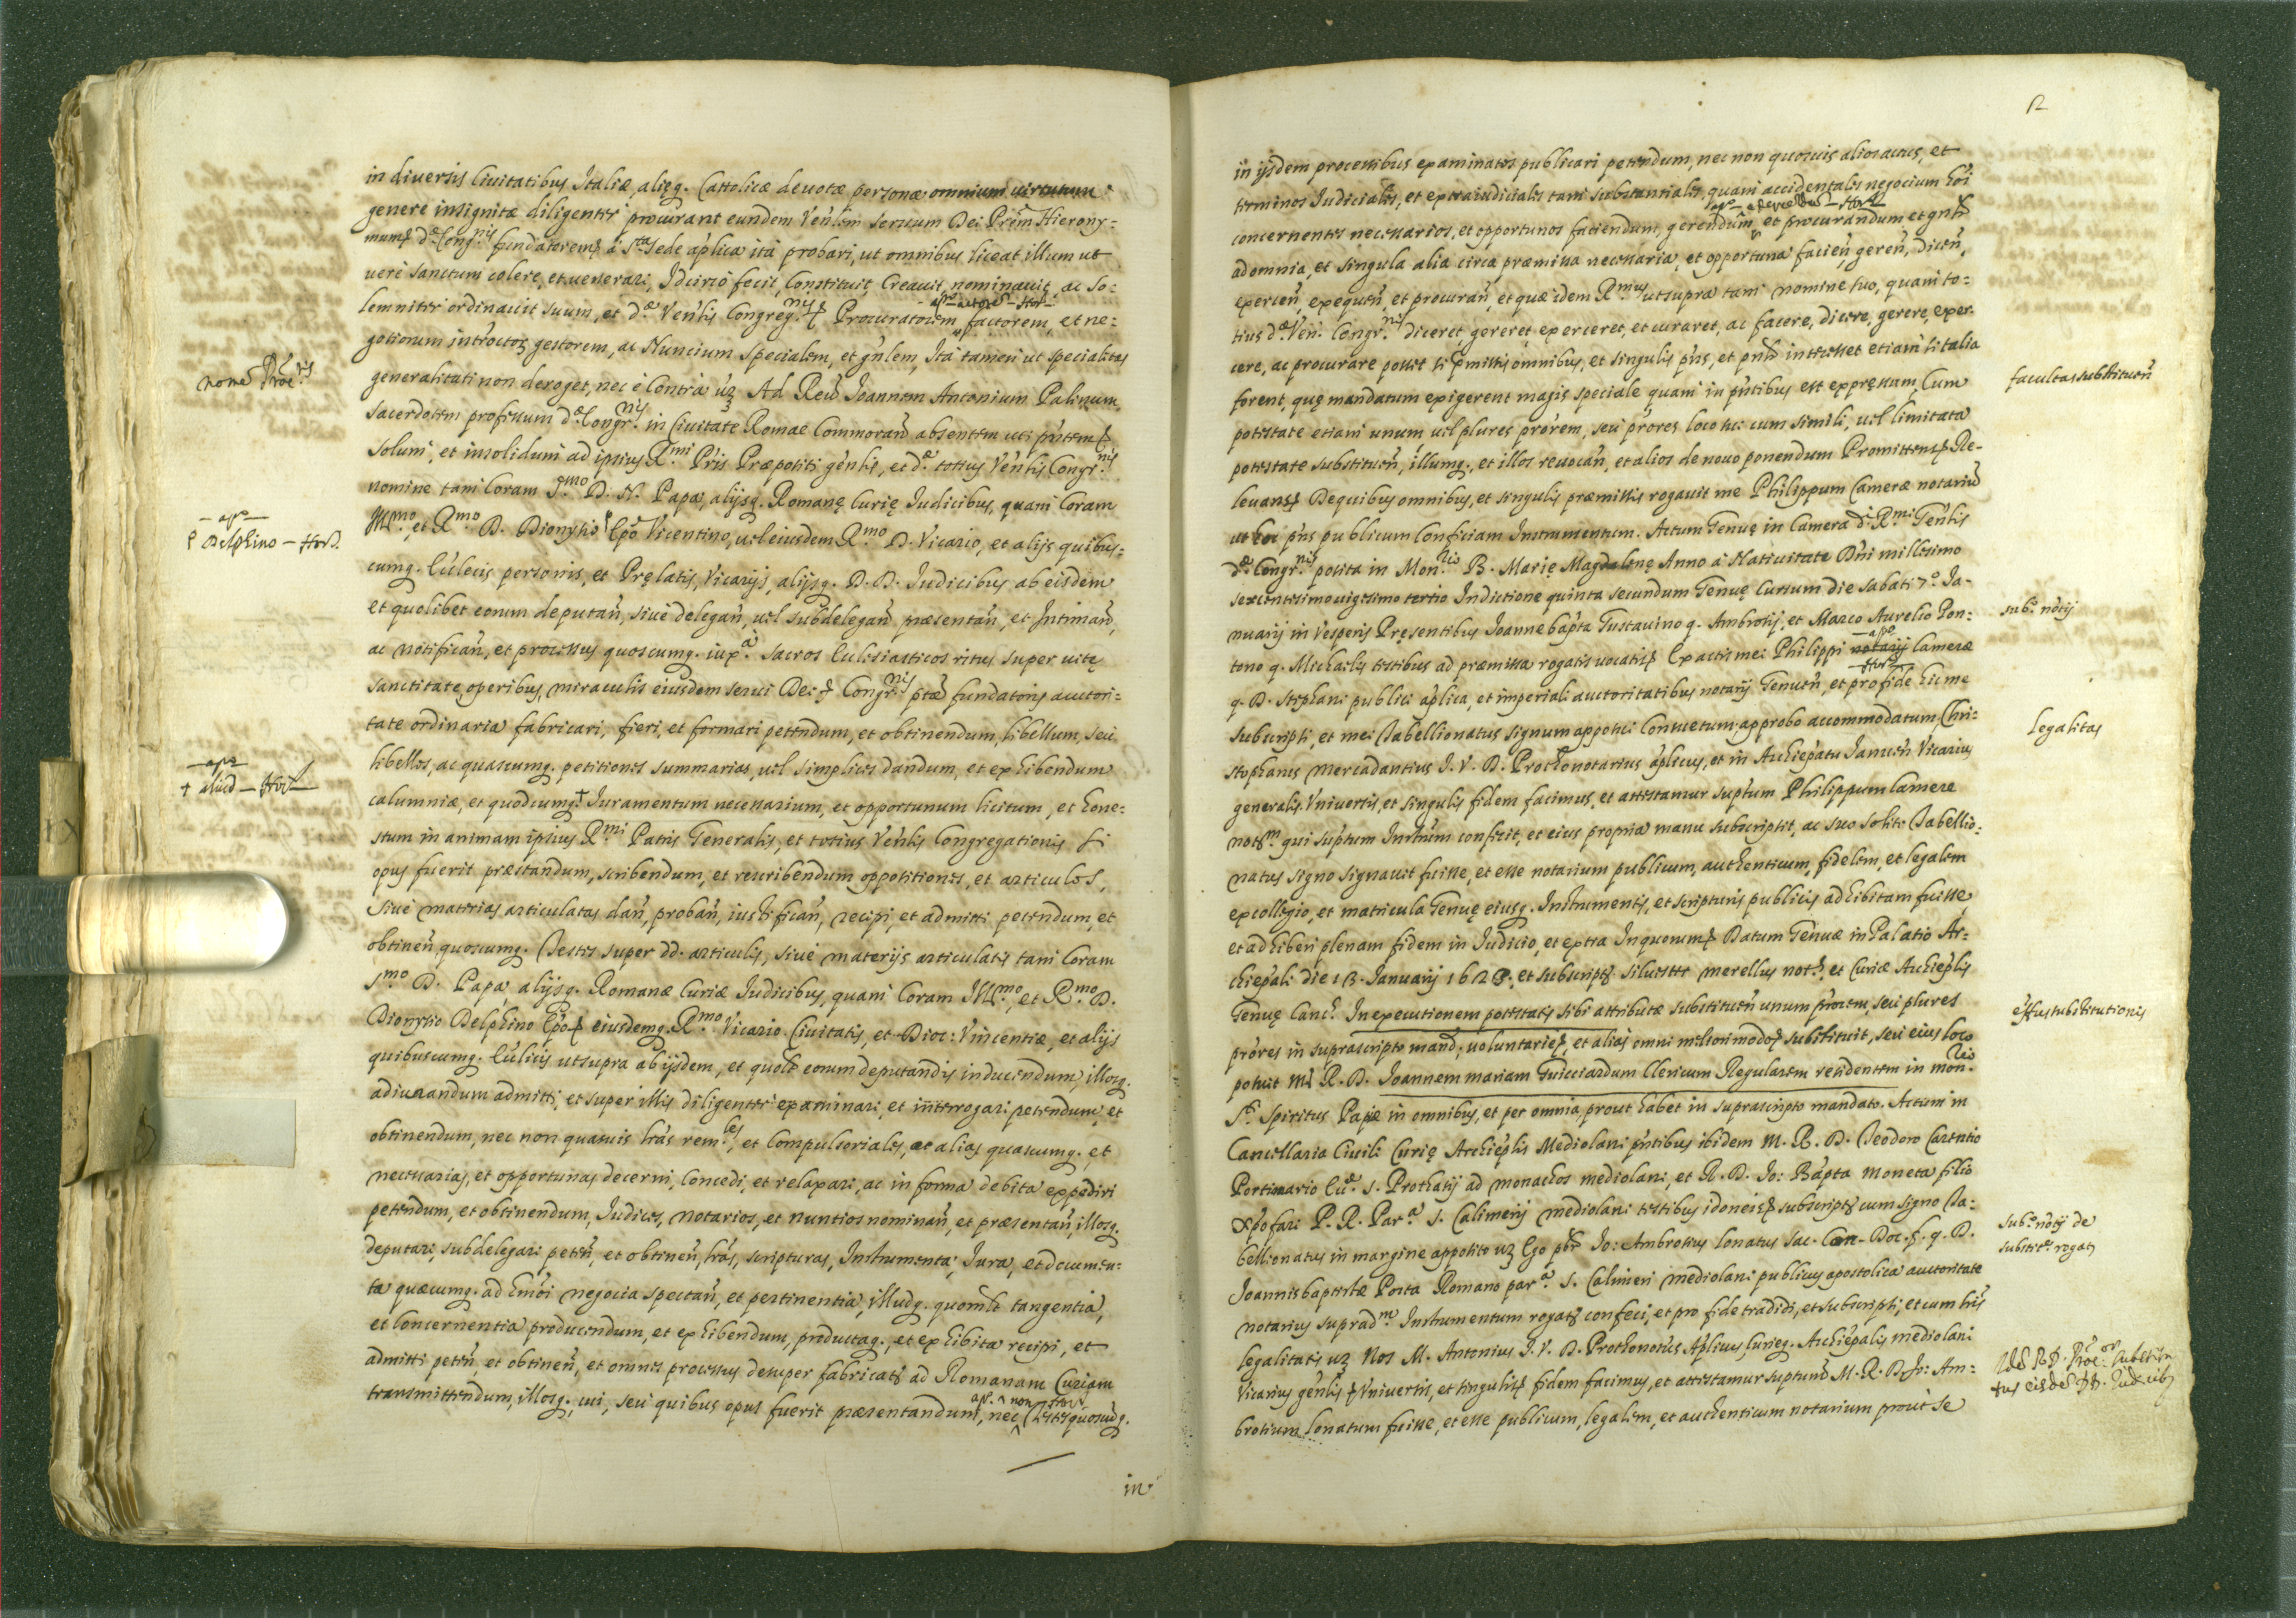 in diversis Civitatibus Italiæ, alięq. Cattolicæ devotæ personæ omnium virtutum
genere insignitæ diligenter procurant eundem Ven'lem servum Dei P'rem Hierony=
mum d.æ Cong.nis fundatorem à S.ta Sede ap'lica ità probari, ut omnibus liceat illum ut
verè sanctum colere, et venerari, Idcircò fecit, Constituit, Creavit, nominavit, ac so=
lemniter ordinavit suum, et d.æ Ven'lis Congreg.nis Procuratorem factorem, et ne=
gotiorum gestorem, ac Nuncium specialem, et g'nlem, Ita tamen ut specialitas
generalitati non deroget, nec è Contrà uz Ad Joannem Antonium Palinum
nome Proc.ris
sacerdotem professum d.æ Congr.nis in Civitate Romae Commoran' absentem uti p'ntem
solum, et insolidum ad ipsius R.mi P'ris Præpositi g'nlis, et d.æ totius Ven'lis Congr.nis
nomine tam Coram S.mo D. N. Papa, alijsq. Romanę Curię Judicibus, quam Coram
Ill.mo, et R.mo D. Dionysio Ep'o Vicentino, vel eiusdem R.mo D. Vicario, et alijs quibus=
Delphino
cumq. Ecclecis personis, et Prelatis, Vicarijs, alijsq. D.D. Judicibus ab eisdem
et quolibet eorum deputan', sivè delegan', vel subdelegan' præsentan', et Intiman',
ac notifican', et processus quoscumq. iuxa sacros Ecclesiasticos ritus super vite
sanctitate, operibus, miraculis eiusdem servi Dei, Congr.nis fundatoris auctori=
tate ordinaria fabricari, fieri, et formari petendum, et obtinendum, libellum, seu
libellos, ac quascumq. petitiones summarias, vel simplices dandum, et exhibendum
† aliud
calumniæ, et quodcumq. † Juramentum necessarium, et opportunum licitum, et hone=
stum in animam ipsius R.mi Patris Generalis, et totius Ven'lis Congregationis si
opus fuerit præstandum, scribendum, et rescribendum oppositiones, et articulos,
sivè materias articulatas dan', proban', iustifican', recipi, et admitti petendum, et
obtinen' quoscumq. Testes super dd. articulis, sivè materijs articulatis tam Coram
S.mo D. Papa, alijsq. Romanæ Curiæ Judicibus, quam Coram Ill.mo, et R.mo D.
Dionysio Delphino Ep'o eiusdemq. R.mo Vicario Civitatis, et Dioc: Vincentiæ, et alijs
quibuscumq. Ecc'licis ut supra ab ijsdem, et quol't eorum deputandis inducendum, illosq.
adiurandum admitti, et super illis diligenter examinari, et interrogari petendum, et
obtinendum, nec non quasuis l'ras rem.les, et Compulsoriales, ac alias quascumq. et
necessarias, et opportunas decerni, Concedi, et relaxari, ac in forma debita expediri
petendum, et obtinendum, Judices, Notarios, et nuntios nominan', et præsentan', illosq.
deputari, subdelegari peten', et obtinen', l'ras, scripturas, Instrumenta, Jura, et documen=
ta quæcumq. ad h'moi negocia spectan', et pertinentia, illudq. tangentia,
et Concernentia producendum, et exhibendum, productaq., et exhibita recipi, et
admitti peten', et obtinen', et omnes processus desuper fabricatos ad Romanam Curiam
transmittendum, illosq. cui, seu quibus opus fuerit præsentandum, nec non Testes quoscu'q.
in
12
in ijsdem processibus examinatos publicari petendum, nec non quosvis alios actus, et
terminos Judiciales, et extraiudiciales tam substantiales, quam accidentales negocium h'oi
concernentes necessarios, et opportunos faciendum, gerendum et procurandum et
ad omnia, et singula alia circa præmissa necessaria, et opportuna facien', geren', dicen',
exercen', exequen', et procuran', et quæ idem R.mus ut supra tam nomine suo, quam to=
tius d.æ Ven. Congr.nis diceret, gereret, exerceret, et curaret, ac facere, dicere, gerere, exer=
cere, ac procurare posset si p'missis omnibus, et singulis p'ns, et interesset etiam si talia
forent, quę mandatum exigerent magis speciale, quam in p'ntibus est expressam, Cum
facultas substituen'
potestate etiam unum vel plures pro'rem, seu pro'res loco sui cum simili, vel limitata
potestate substituen', illumq., et illos revocan', et alios de novo ponendum Promittens Re=
levans De quibus omnibus, et singulis præmissis rogavit me Philippum Cameræ notariu'
ut hoc p'ns publicum Conficiam Instrumentum. Actum Genuę in Camera d.i R.mi G'nlis
d.æ Congr.nis posita in Mon.rio B. Marię Magdalenę Anno à Nativitate D'ni millesimo
sexcentesimo vigesimo tertio Indictione quinta secundum Genuę Cursum die Sabati 7.º Ja=
nuarij in Vesperis Presentibus Joanne bap'ta Gustavino q. Ambrosij, et Marco Aurelio Pon=
sub.º no'rij
tono q. Michaelis testibus ad præmissa rogatis vocatis Ex actis mei Philippi notarij Cameræ
q. D. Stephani publici ap'lica, et imperiali auctoritatibus notarij Genuen', et pro fide hic me
subscripsi, et mei Tabellionatus signum apposui Consuetum, approbo accommodatum, Chri=
legalitas
stophanes Mercadantius J. V. D. Prothonotarius ap'licus, et in Archiep'atu Januen' Vicarius
generalis. Vniversis, et singulis fidem facimus, et attestamur sup'tum Philippum Camere
not.m qui sup'tum Instr'um confecit, et eius propria manu subscripsit, ac suo solito Tabellio=
natus signo signavit fuisse, et esse notarium publicum, authenticum, fidelem, et legalem
ex collegio, et matricula Genuę eiusq. Instrumentis, et scripturis publicis adhibitam fuisse,
et adhiberi plenam fidem in Judicio, et extra In quorum Datum Genuæ in Palatio Ar=
chiep'ali die 13. Januarij 1623. et subscript. Silvester Merellus not.s, et Curiæ Archiep'lis
Genuę Canc.s In executionem potestatis sibi attributæ substituen' unum pro'rem, seu plures
effus substitutionis
pro'res in suprascripto mand. voluntarie, et alias omni meliori modo substituit, seu eius loco
posuit M. R. D. Joannem mariam Guicciardum Clericum Regularem residentem in mon.rio
S.ti Spiritus Papiæ in omnibus, et per omnia prout habet in suprascripto mandato. Actum in
Cancellaria Civili Curię Archiep'lis Mediolani p'ntibus ibidem M. R. D. Teodoro Carentio
Portinario s. Prothasij ad monachos mediolani, et R. D. Jo: Bap'ta Moneta filio
Xp'ofari P. R. Par.a S. Calimerij mediolani testibus idoneis subscript. cum signo Ta=
sub.º no'rij de
substit.e rogat.
bellionatus in margine apposito uz Ego p'br Jo: Ambrosius Lonatus q. D.
Joannis baptistæ Porta Romano par.a S. Calimeri mediolani publicus apostolica auctoritate
notarius suprad.m Instrumentum rogat. confeci, et pro fide tradidi, et subscripsi, et cum
legalitatis uz Nos M. Antonius J. V. D. Prothonot.us Ap'licus, Curięq. Archiep'alis mediolani
Vicarius g'nlis Vniversis, et singulis fidem facimus, et attestamur sup'tum M. R. D. Jo: Am=
brosium Lonatum fuisse, et esse publicum, legalem, et authenticum notarium prout se